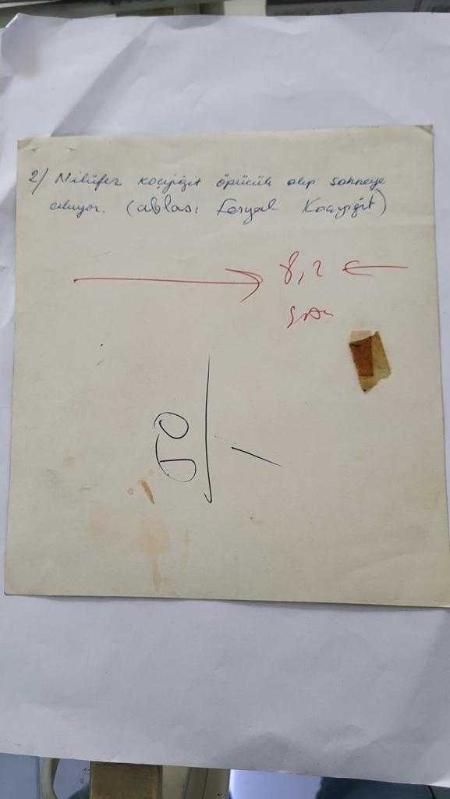 2) Nilüfer Koçyiğit öpücük alıp sahneye
çıkıyor. (ablası Feryal Koçyiğit)
8,2